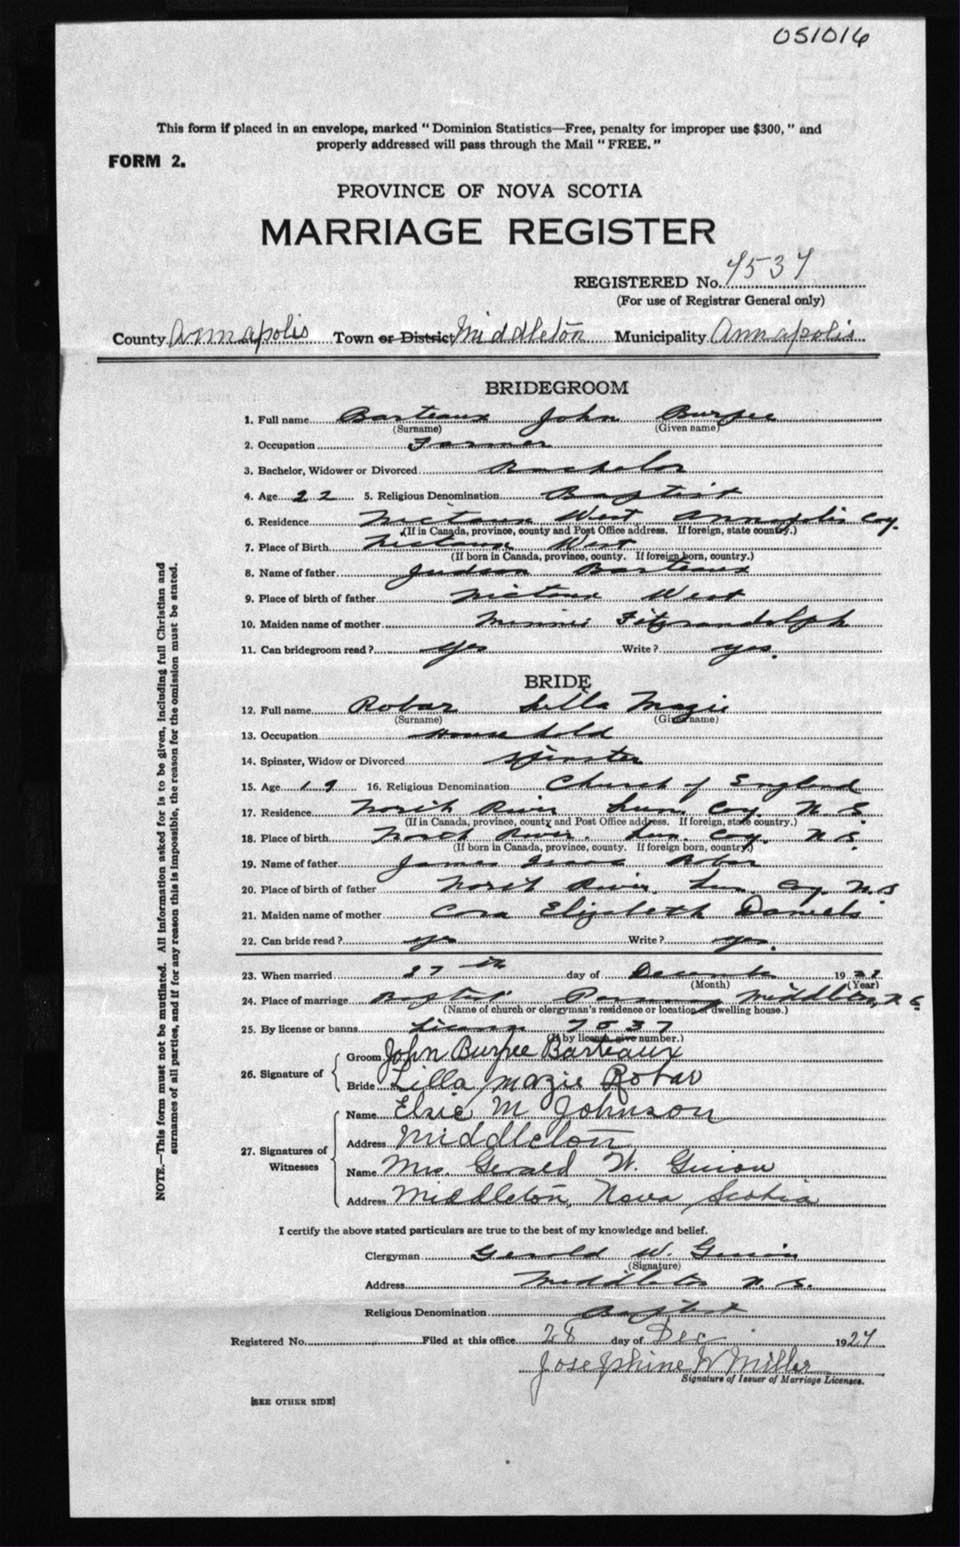 051016
This form if placed in an envelope, marked "Dominion Statistics—Free, penalty for improper use $300," and
properly addressed will pass through the Mail "FREE."
FORM 2.
PROVINCE OF NOVA SCOTIA
MARRIAGE REGISTER
REGISTERED No. 7537
(For use of Registrar General only)
County Annapolis Town or District Middleton Municipality Annapolis
BRIDEGROOM
1. Full name Barteaux John Burpee
(Surname) (Given name)
2. Occupation Farmer
3. Bachelor, Widower or Divorced Bachelor
4. Age 22 5. Religious Denomination Baptist
6. Residence Nictaux West Annapolis Coy.
(If in Canada, province, county and Post Office address. If foreign, state country.)
7. Place of Birth Nictaux West
(If born in Canada, province, county. If foreign born, country.)
8. Name of father Judson Barteaux
9. Place of birth of father Nictaux West
10. Maiden name of mother Minnie Fitzrandolph
11. Can bridegroom read? yes Write? yes.
BRIDE
12. Full name Robar Lilla Mazie
(Surname) (Given name)
13. Occupation Household
14. Spinster, Widow or Divorced Spinster
15. Age 19 16. Religious Denomination Church of England
17. Residence North River Lun. Coy. N.S.
(If in Canada, province, county and Post Office address. If foreign, state country.)
18. Place of birth North River. Lun. Coy. N.S.
(If born in Canada, province, county. If foreign born, country.)
19. Name of father James Isaac Robar
20. Place of birth of father North River. Lun. Cy. N.S
21. Maiden name of mother Cora Elizabeth Daniels
22. Can bride read? yes Write? yes.
23. When married 27th day of December 1927
(Month) (Year)
24. Place of marriage Baptist Parsonage Middleton, N.S.
(Name of church or clergyman's residence or location of dwelling house.)
25. By license or banns License 7537
(If by license, give number.)
26. Signature of
Groom John Burpee Barteaux
Bride Lilla Mazie Robar
27. Signatures of Witnesses
Name Elsie M Johnson
Address Middleton
Name Mrs. Gerald W. Guiou
Address Middleton, Nova Scotia
I certify the above stated particulars are true to the best of my knowledge and belief.
Clergyman Gerald W. Guiou
(Signature)
Address Middleton N.S.
Religious Denomination Baptist
Registered No. Filed at this office 28 day of Dec 1927
Josephine W Miller
Signature of Issuer of Marriage Licenses.
[SEE OTHER SIDE]
NOTE.—This form must not be mutilated. All information asked for is to be given, including full Christian and
surnames of all parties, and if for any reason this is impossible, the reason for the omission must be stated.